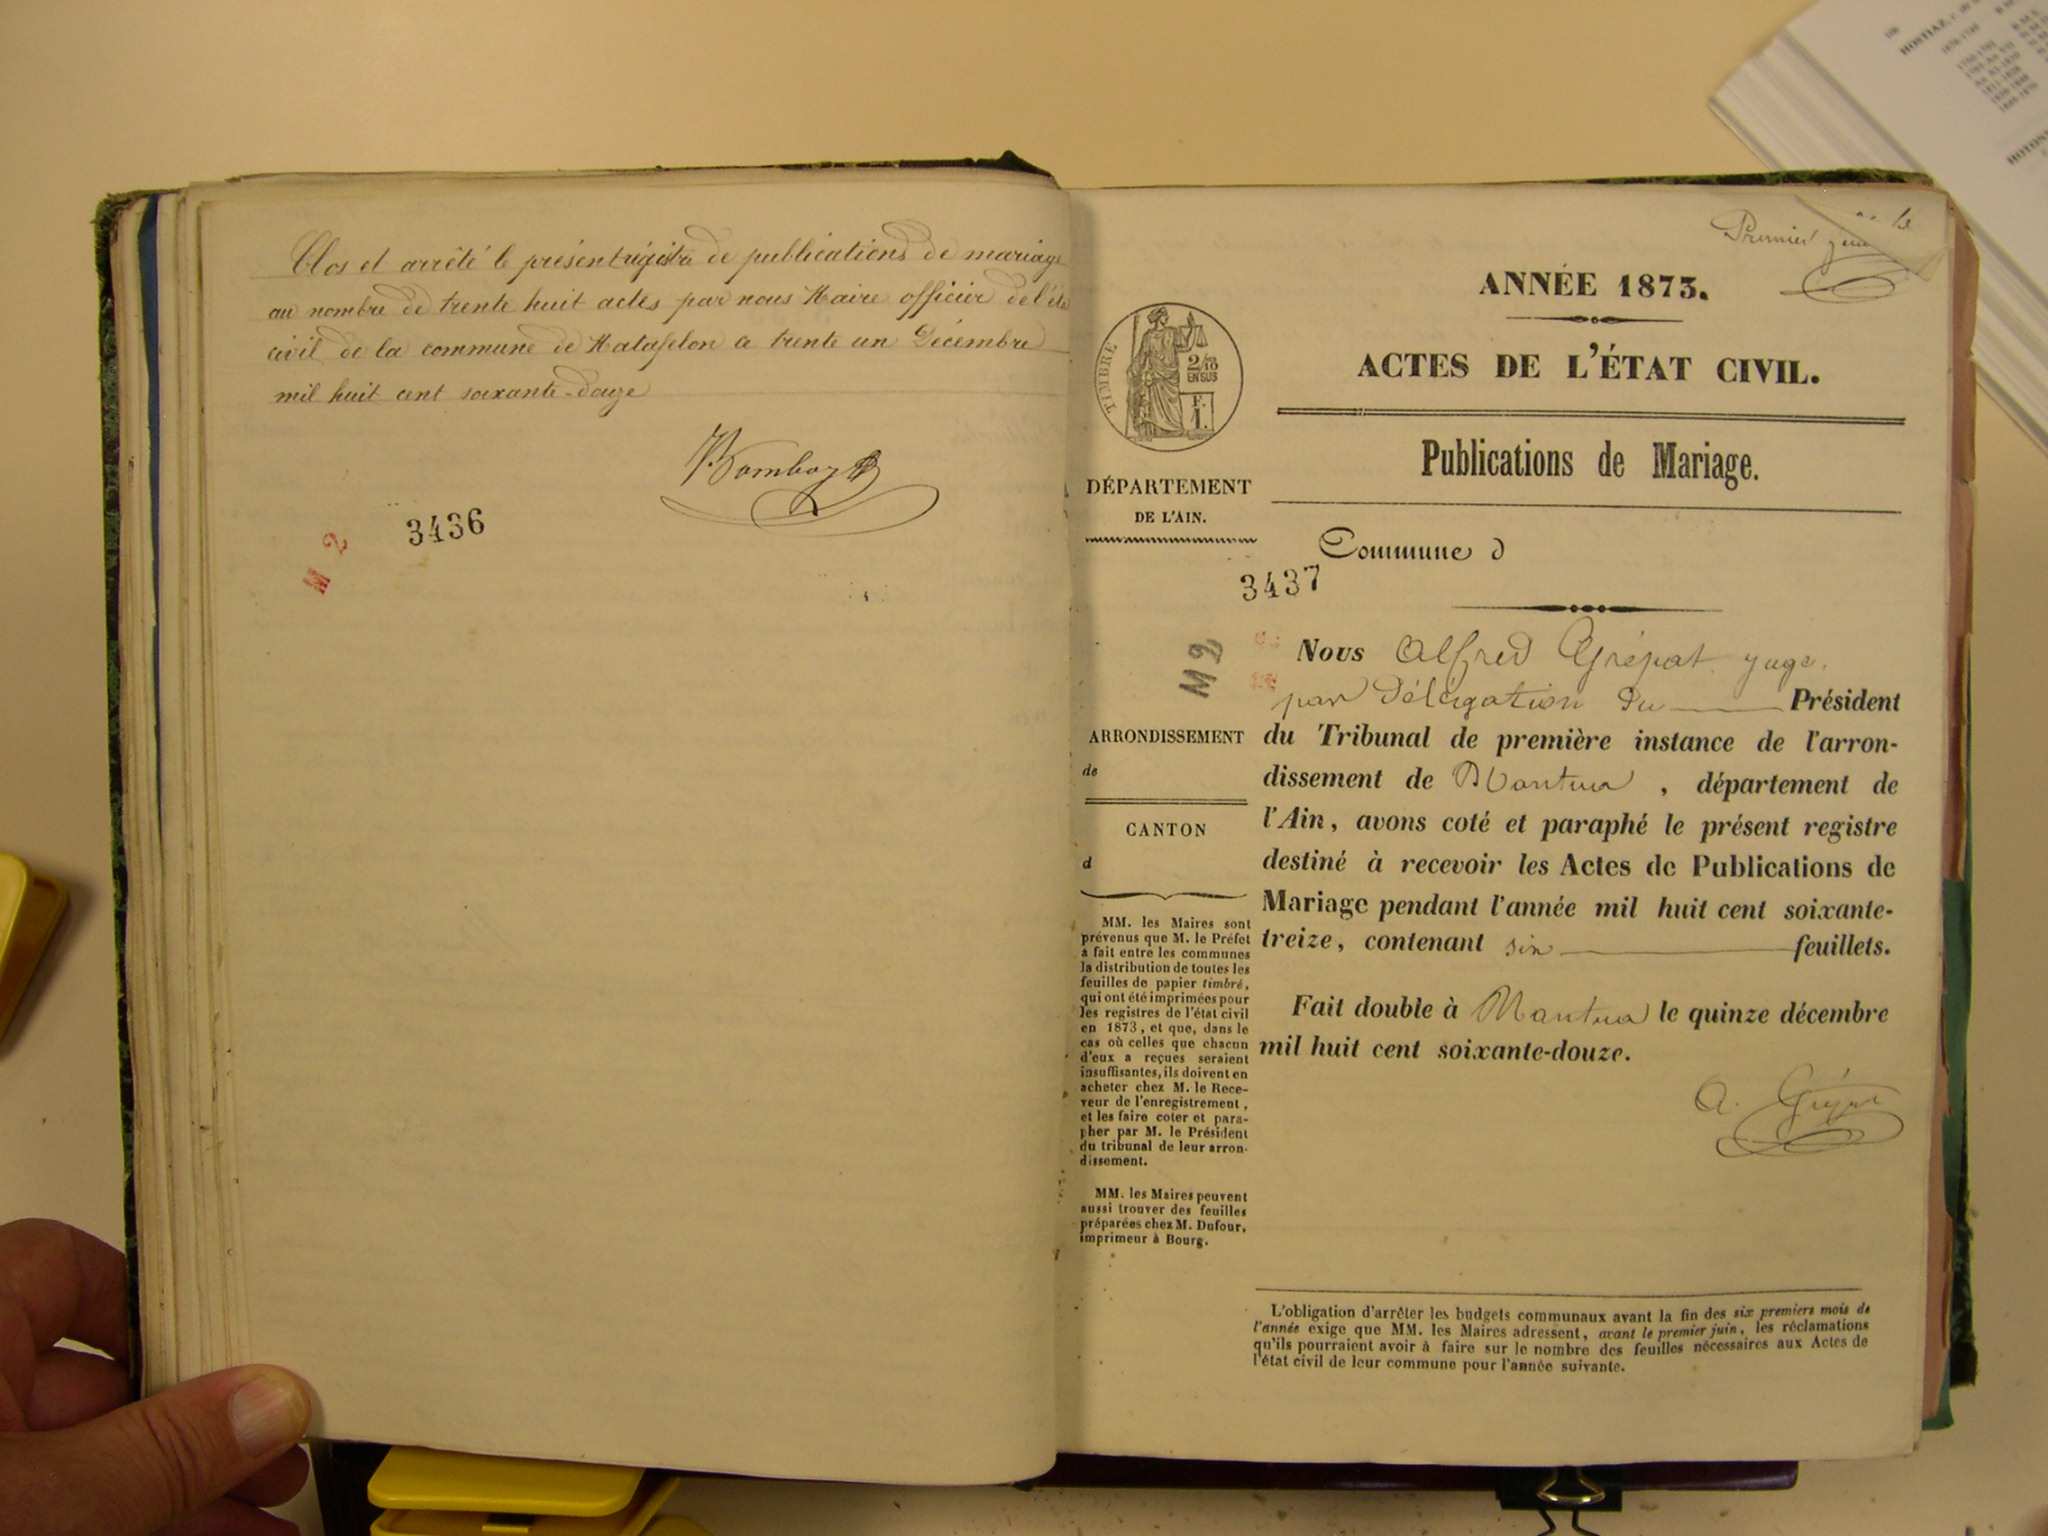 Clos et arrêté le présent régistre de publications de mariage
au nombre de trente huit actes par nous Maire officier de l'état
civil de la commune de Matafelon a trente un Décembre
mil huit cent soixante-douze
3436
M 2
Premier
ANNÉE 1873.
ACTES DE L'ÉTAT CIVIL.
Publications de Mariage.
TIMBRE
2/10
EN SUS
F.
1.
DÉPARTEMENT
DE L'AIN.
Commune d
3437
M 2
ARRONDISSEMENT
de
CANTON
d
MM. les Maires sont
prévenus que M. le Préfet
a fait entre les communes
la distribution de toutes les
feuilles de papier timbré,
qui ont été imprimées pour
les registres de l'état civil
en 1873, et que, dans le
cas où celles que chacun
d'eux a reçues seraient
insuffisantes, ils doivent en
acheter chez M. le Rece-
veur de l'enregistrement,
et les faire coter et para-
pher par M. le Président
du tribunal de leur arron-
dissement.
MM. les Maires peuvent
aussi trouver des feuilles
préparées chez M. Dufour,
imprimeur à Bourg.
Nous Alfred Grépat juge
par délégation du Président
du Tribunal de première instance de l'arron-
dissement de Mantua, département de
l'Ain, avons coté et paraphé le présent registre
destiné à recevoir les Actes de Publications de
Mariage pendant l'année mil huit cent soixante-
treize, contenant six feuillets.
Fait double à Mantua le quinze décembre
mil huit cent soixante-douze.
L'obligation d'arrêter les budgets communaux avant la fin des six premiers mois de
l'année exige que MM. les Maires adressent, avant le premier juin, les réclamations
qu'ils pourraient avoir à faire sur le nombre des feuilles nécessaires aux Actes de
l'état civil de leur commune pour l'année suivante.